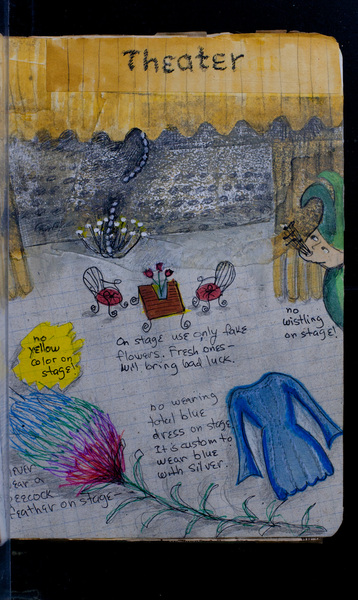 Theater
no
wistling
on stage!
no
yellow
color on
stage!
On stage use only fake
flowers. Fresh ones-
will bring bad luck.
no wearing
total blue
dress on stage
It's custom to
wear blue
with silver.
never
ear a
eacock
feather on stage-